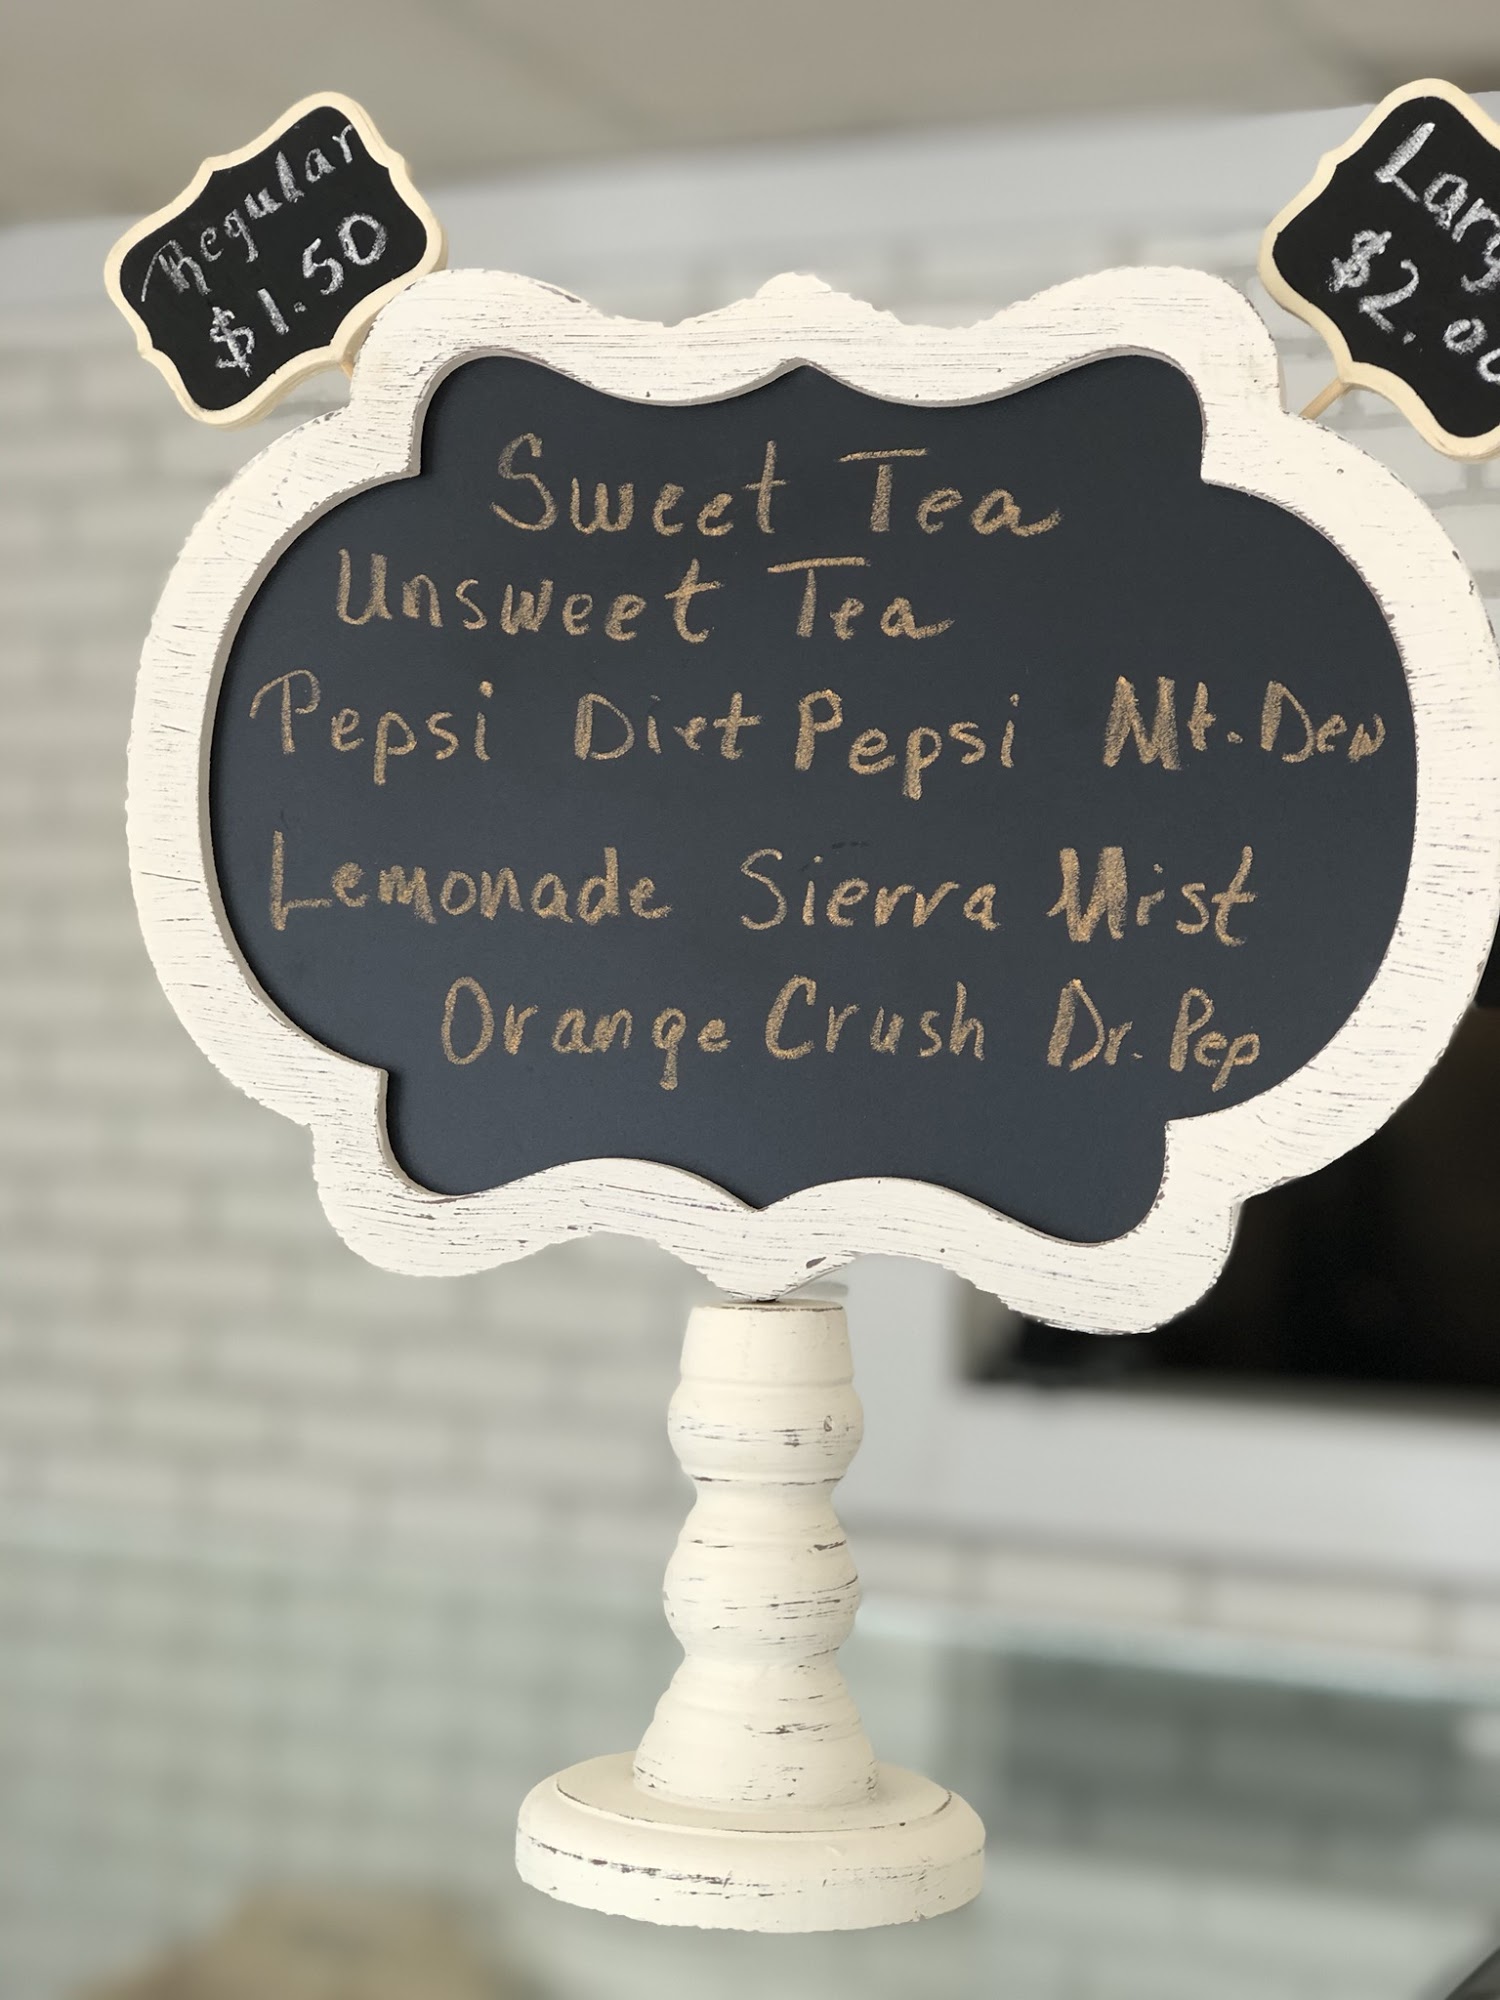 Regular
$1.50
Larg
$2.00
Sweet Tea
Unsweet Tea
Pepsi Diet Pepsi Mt. Dew
Lemonade Sierra Mist
Orange Crush Dr. Pep